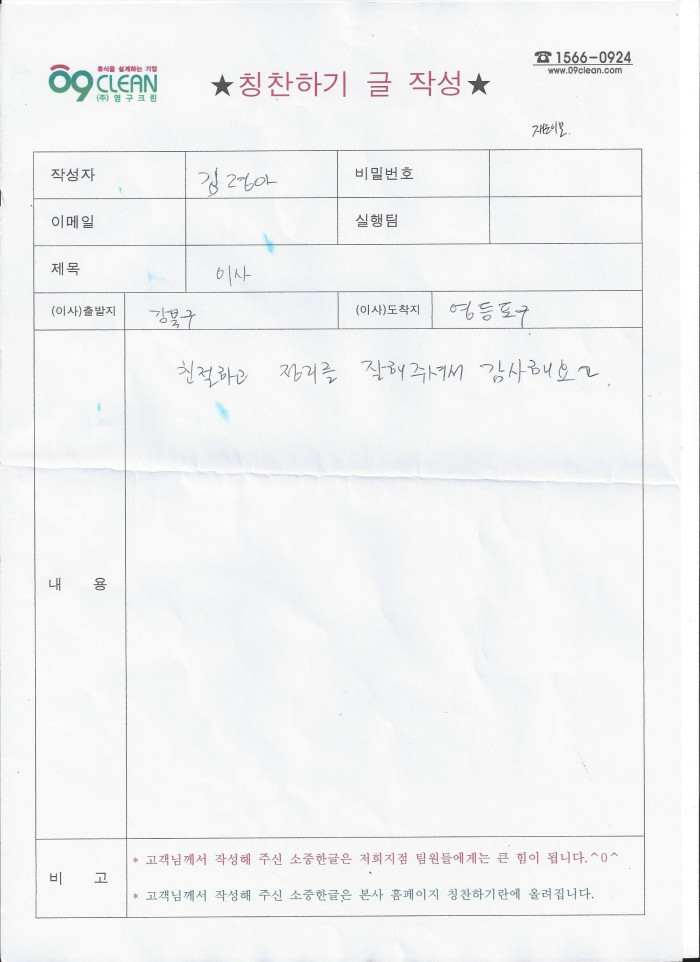 휴식을 설계하는 기업
09 CLEAN
(주)영구크린
★칭찬하기 글 작성★
☎ 1566-0924
www.09clean.com
작성자 김경아 비밀번호
이메일 실행팀
제목 이사
(이사)출발지 강북구 (이사)도착지 영등포구
친절하고 정리를 잘해주셔서 감사해요
내 용
* 고객님께서 작성해 주신 소중한글은 저희지점 팀원들에게는 큰 힘이 됩니다.^0^
비 고
* 고객님께서 작성해 주신 소중한글은 본사 홈페이지 칭찬하기란에 올려집니다.